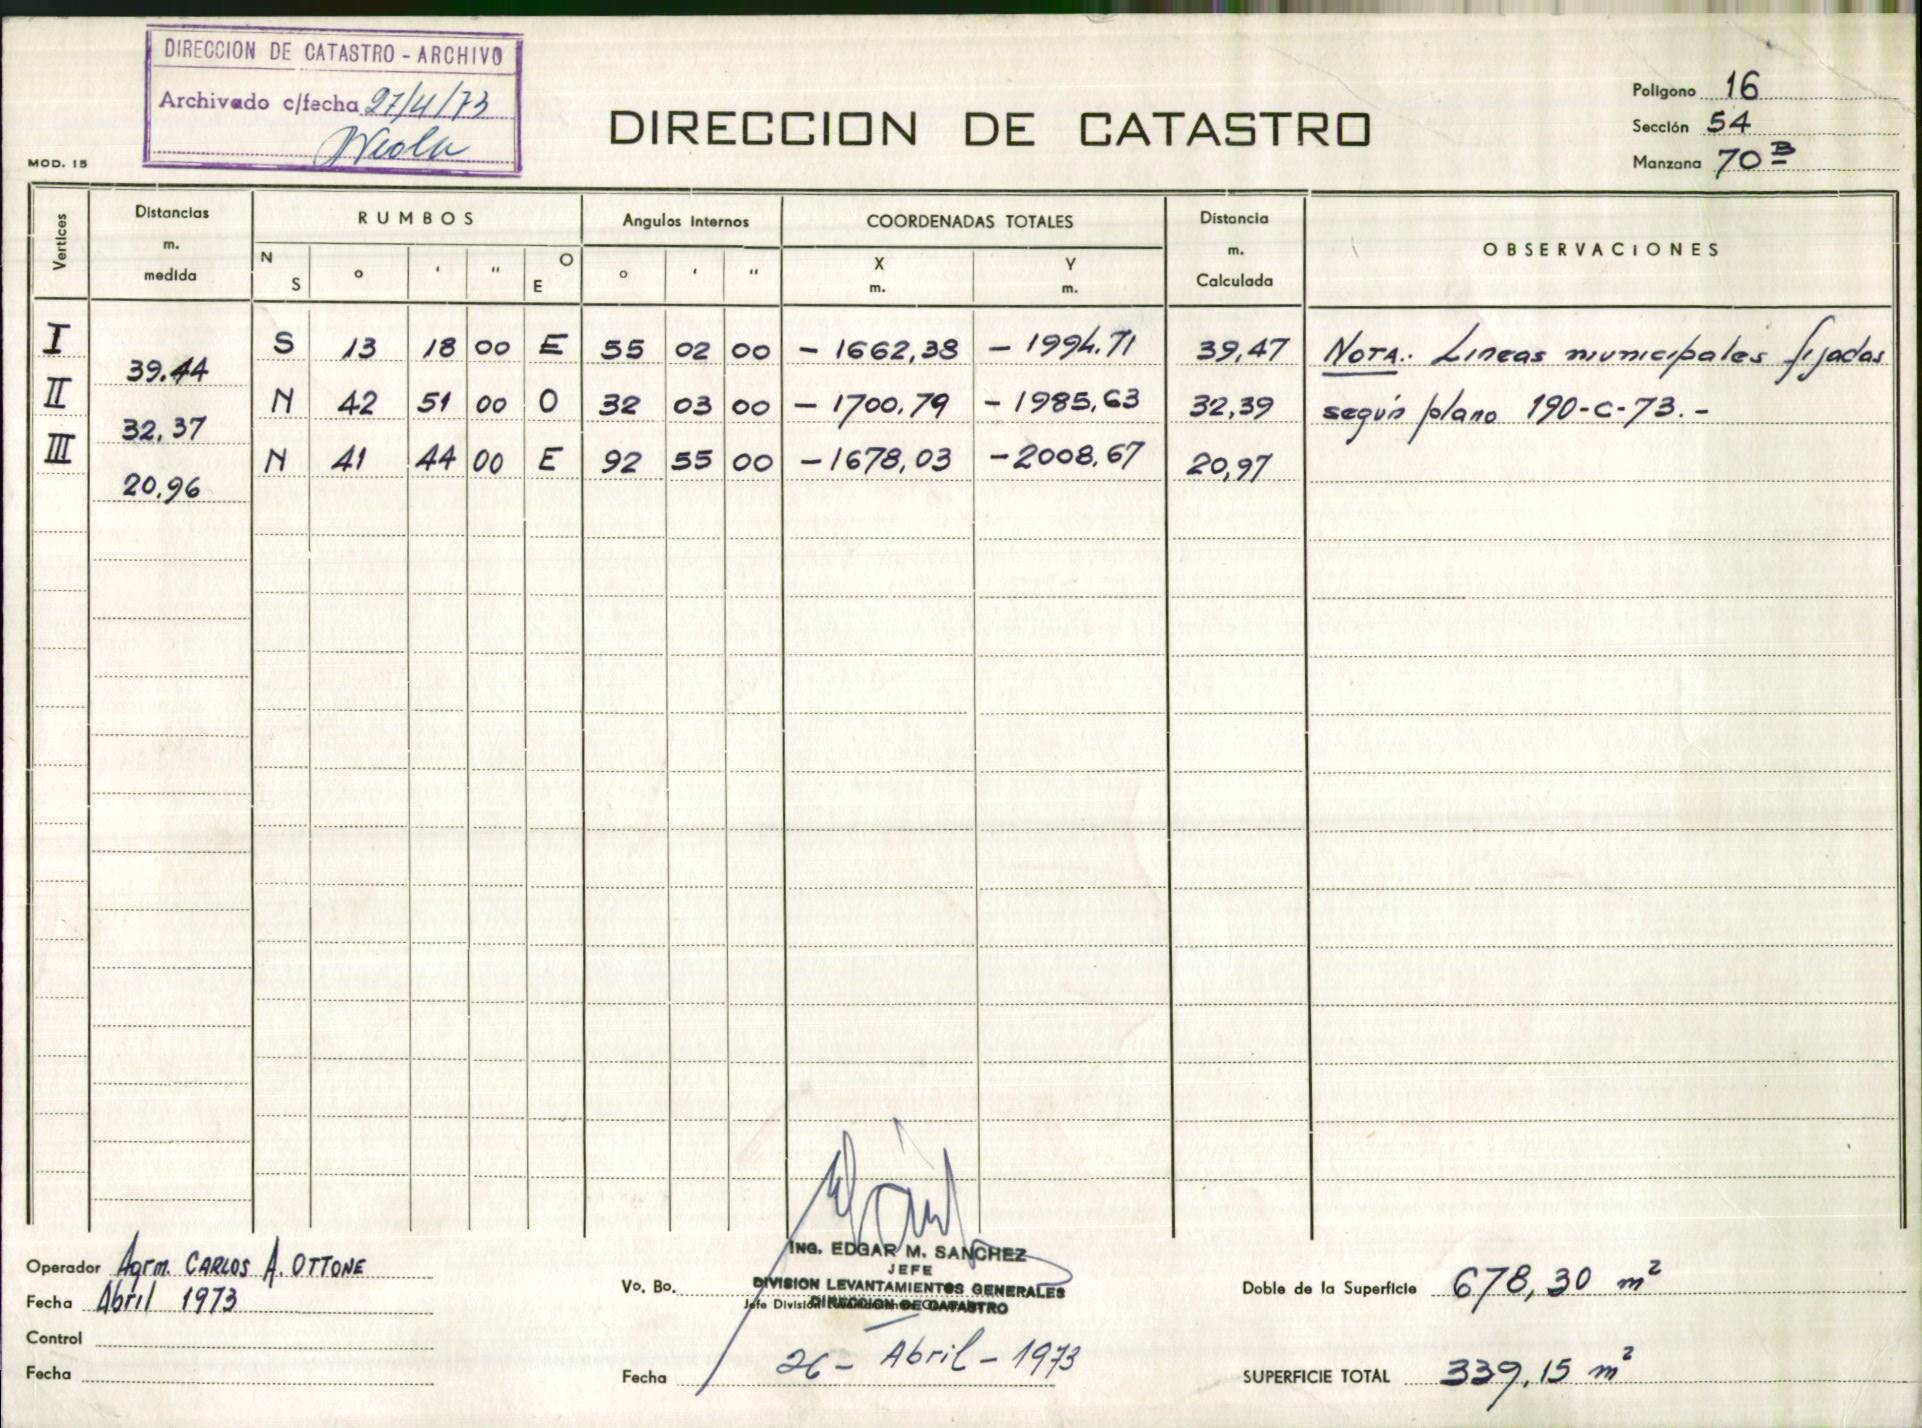 DIRECCION DE CATASTRO - ARCHIVO
Archivado c/fecha 27/4/73
MOD. 15
DIRECCION DE CATASTRO
Poligono 16
Sección 54
Manzana 70 B
Vertices
Distancias m. medida
RUMBOS
N S ° ' " O E
Angulos Internos
° ' "
COORDENADAS TOTALES
X m. Y m.
Distancia m. Calculada
OBSERVACIONES
I 39.44 S 13 18 00 E 55 02 00 - 1662,38 - 1994.71 39,47 NOTA: Lineas municipales fijadas
II 32,37 N 42 51 00 O 32 03 00 - 1700,79 - 1985,63 32,39 según plano 190-C-73.-
III 20,96 N 41 44 00 E 92 55 00 - 1678,03 - 2008,67 20,97
Operador Agrm. CARLOS A. OTTONE
Fecha Abril 1973
Control
Fecha
Vo. Bo.
ING. EDGAR M. SANCHEZ
JEFE
DIVISION LEVANTAMIENTOS GENERALES
Jefe División
DIRECCION DE CATASTRO
Fecha 26 - Abril - 1973
Doble de la Superficie 678,30 m²
SUPERFICIE TOTAL 339,15 m²